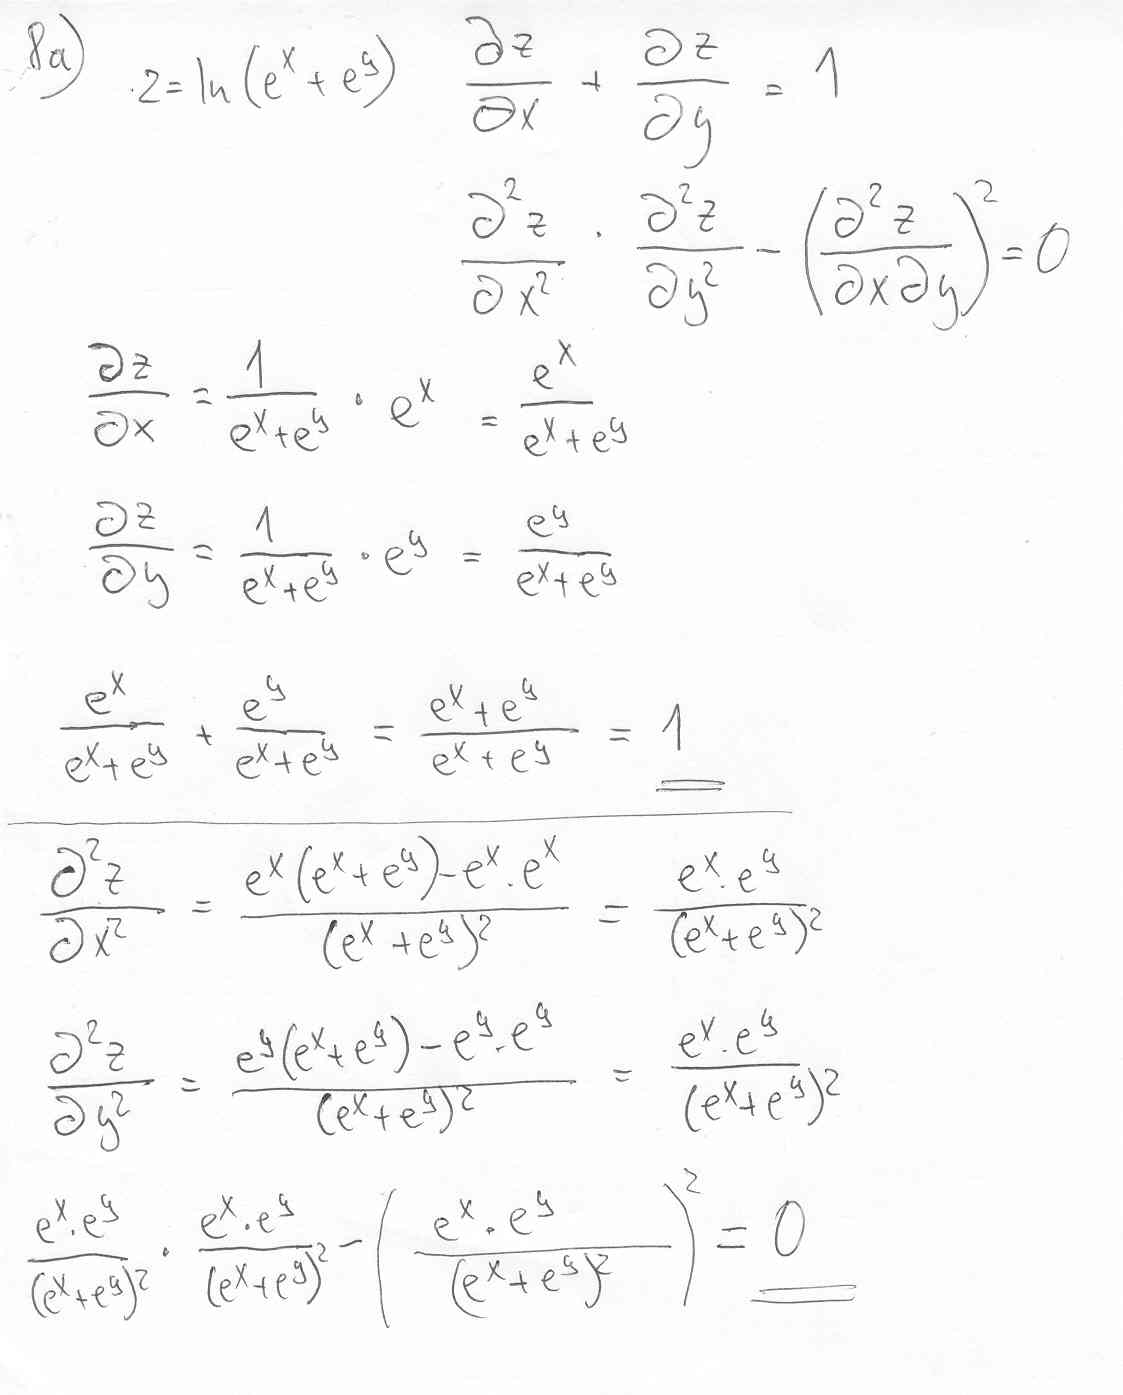 8a) z = ln(e^x + e^y) ∂z/∂x + ∂z/∂y = 1
∂²z/∂x² · ∂²z/∂y² − (∂²z/∂x∂y)² = 0
∂z/∂x = 1/(e^x + e^y) · e^x = e^x/(e^x + e^y)
∂z/∂y = 1/(e^x + e^y) · e^y = e^y/(e^x + e^y)
e^x/(e^x + e^y) + e^y/(e^x + e^y) = (e^x + e^y)/(e^x + e^y) = 1
∂²z/∂x² = (e^x(e^x + e^y) − e^x · e^x)/(e^x + e^y)² = e^x · e^y/(e^x + e^y)²
∂²z/∂y² = (e^y(e^x + e^y) − e^y · e^y)/(e^x + e^y)² = e^x · e^y/(e^x + e^y)²
e^x · e^y/(e^x + e^y)² · e^x · e^y/(e^x + e^y)² − (e^x · e^y/(e^x + e^y)²)² = 0